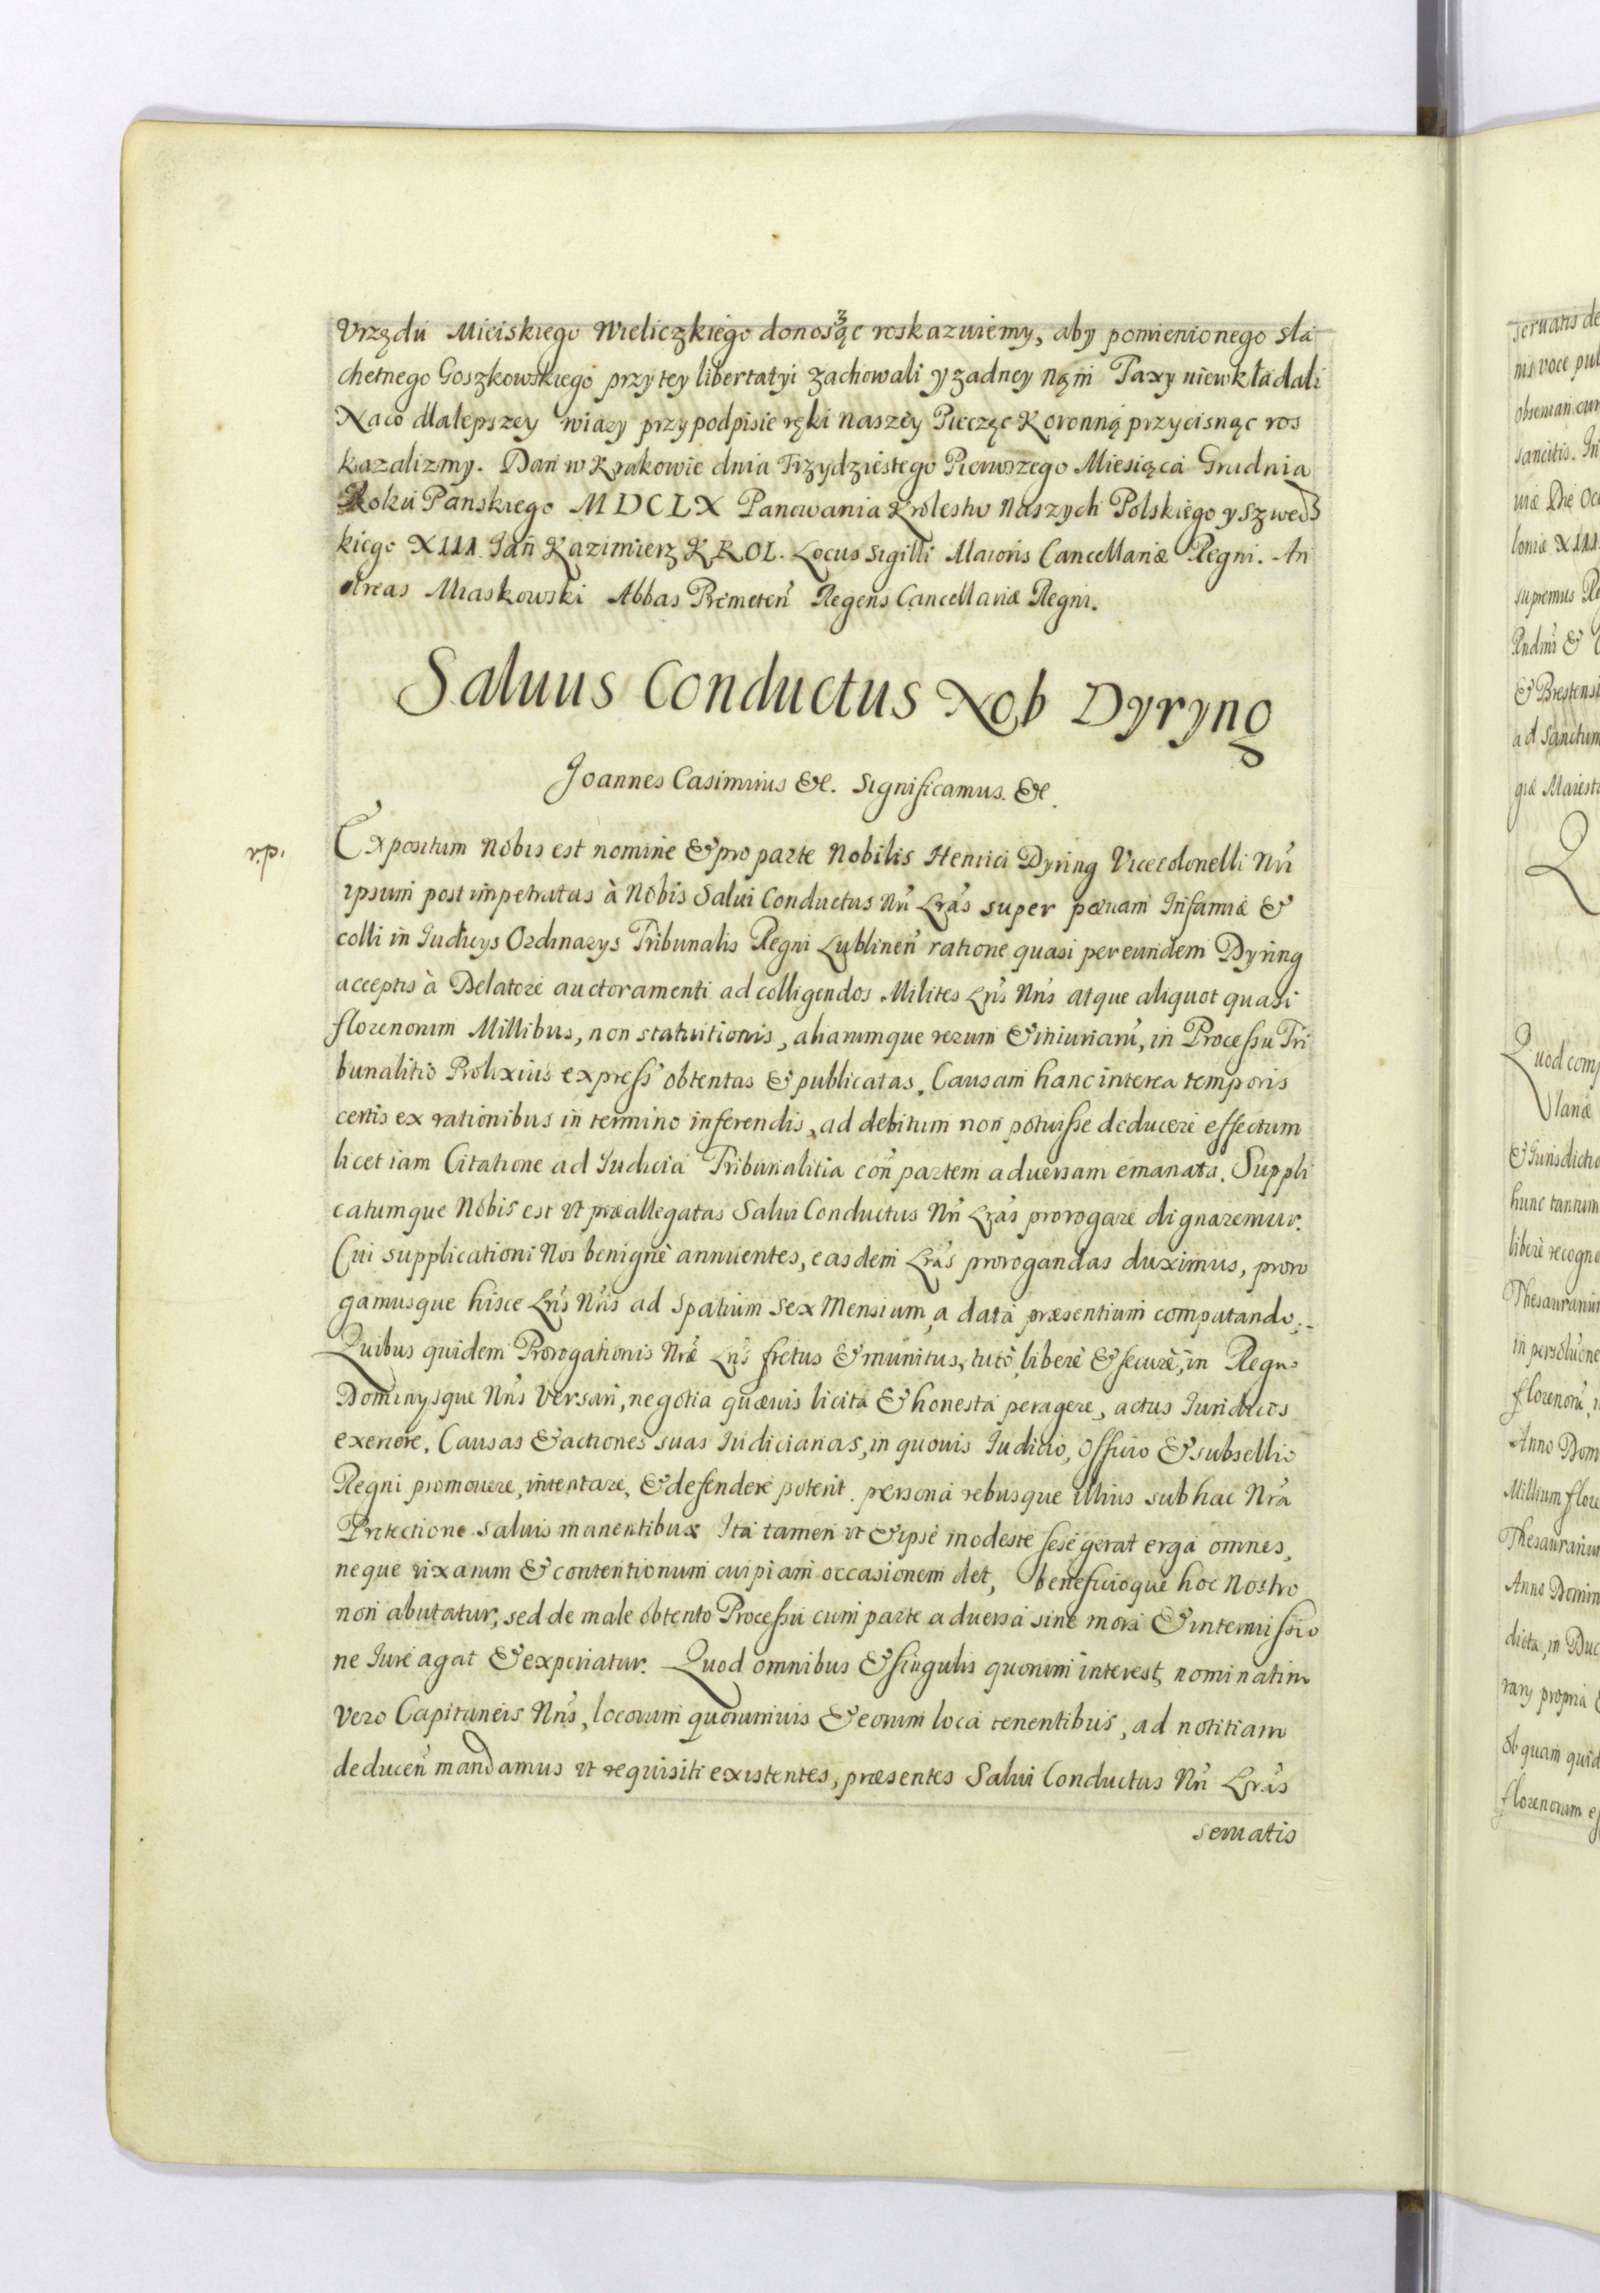 Vrzędu Mieiskiego Wieliczkiego donosząc roskazuiemy, aby pomienionego sla
chetnego Goszkowskiego przy tey libertatyi zachowali y zadney nąm Taxy niewkładali
Naco dlalepszey wiary przypodpisie ręki naszey Pieczęc Koronną przycisnąc ros
kazalizmy. Dan w Krakowie dnia Trzydziestego Pierwszego Miesiąca Grudnia
Roku Panskiego MDCLX Panowania Krolestw Naszych Polskiego y szweds
kiego XIII. Jan Kazimierz KROL. Locus Sigilli Maioris Cancellariæ Regni. An
dreas Miaskowski Abbas Premeten̄ Regens Cancellariæ Regni.
Saluus Conductus Nob Dyryng
Joannes Casimirus &c. Significamus. &c.
r.p.
Expositum Nobis est nomine & pro parte Nobilis Henrici Dyring Vicecolonelli Nri
ipsum post impetratas à Nobis Salui Conductus Nri Lrãs super pœnam Infamiæ &
colli in Iudicys Ordinarys Tribunalis Regni Lublinen̄ ratione quasi per eundem Dyring
acceptis à Delatore auctoramenti ad colligendos Milites Lrĩs Nrĩs atque aliquot quasi
florenorum Millibus, non statuitionis, aliarumque rerum & iniuriarũ, in Processu Tri
bunalitio Prolixius express̃ obtentas & publicatas. Causam hanc interea temporis
certis ex rationibus in termino inferendis, ad debitum non potuisse deducere effectum
licet iam Citatione ad Iudicia Tribunalitia con̄ partem aduersam emanata. Suppli
catumque Nobis est vt præallegatas Salui Conductus Nri Lrãs prorogare dignaremur.
Cui supplicationi Nos benignè annuentes, easdem Lrãs prorogandas duximus, proro
gamusque hisce Lrĩs Nrĩs ad spatium sex Mensium, a data præsentium computando.
Quibus quidem Prorogationis Nræ Lrĩs fretus & munitus, tutò, liberè & securè, in Regno
Dominysque Nrĩs versari, negotia quæuis licita & honesta peragere, actus Iuridicos
exercere, Causas & actiones suas Iudiciarias, in quouis Iudicio, Officio & subsellio
Regni promouere, intentare, & defendere poterit. persona rebusque illius sub hac Nra
Protectione saluis manentibus Ita tamen vt & ipse modeste sese gerat erga omnes,
neque rixarum & contentionum cuipiam occasionem det, beneficioque hoc Nostro
non abutatur, sed de male obtento Processu cum parte aduersa sine mora & intermissio
ne Iure agat & experiatur. Quod omnibus & singulis quorum interest, nominatim
vero Capitaneis Nrĩs, locorum quorumuis & eorum loca tenentibus, ad notitiam
deducen̄ mandamus vt requisiti existentes, præsentes Salui Conductus Nri Lrãs
seruatis